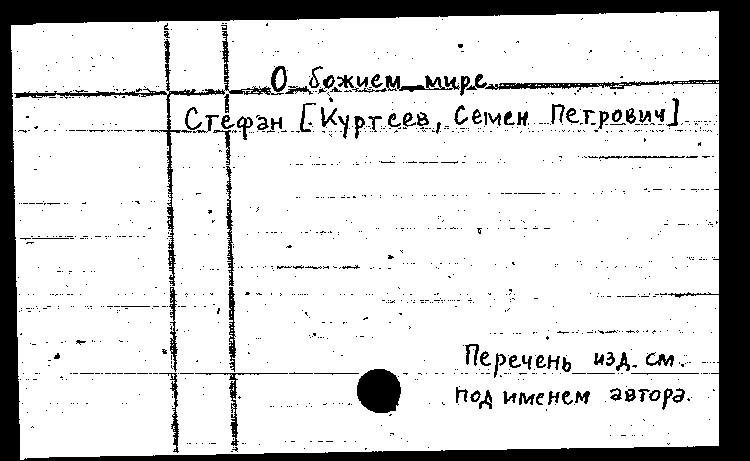 О божием мире
Стефан [Куртеев, Семен Петрович]
Перечень изд. см.
под именем автора.